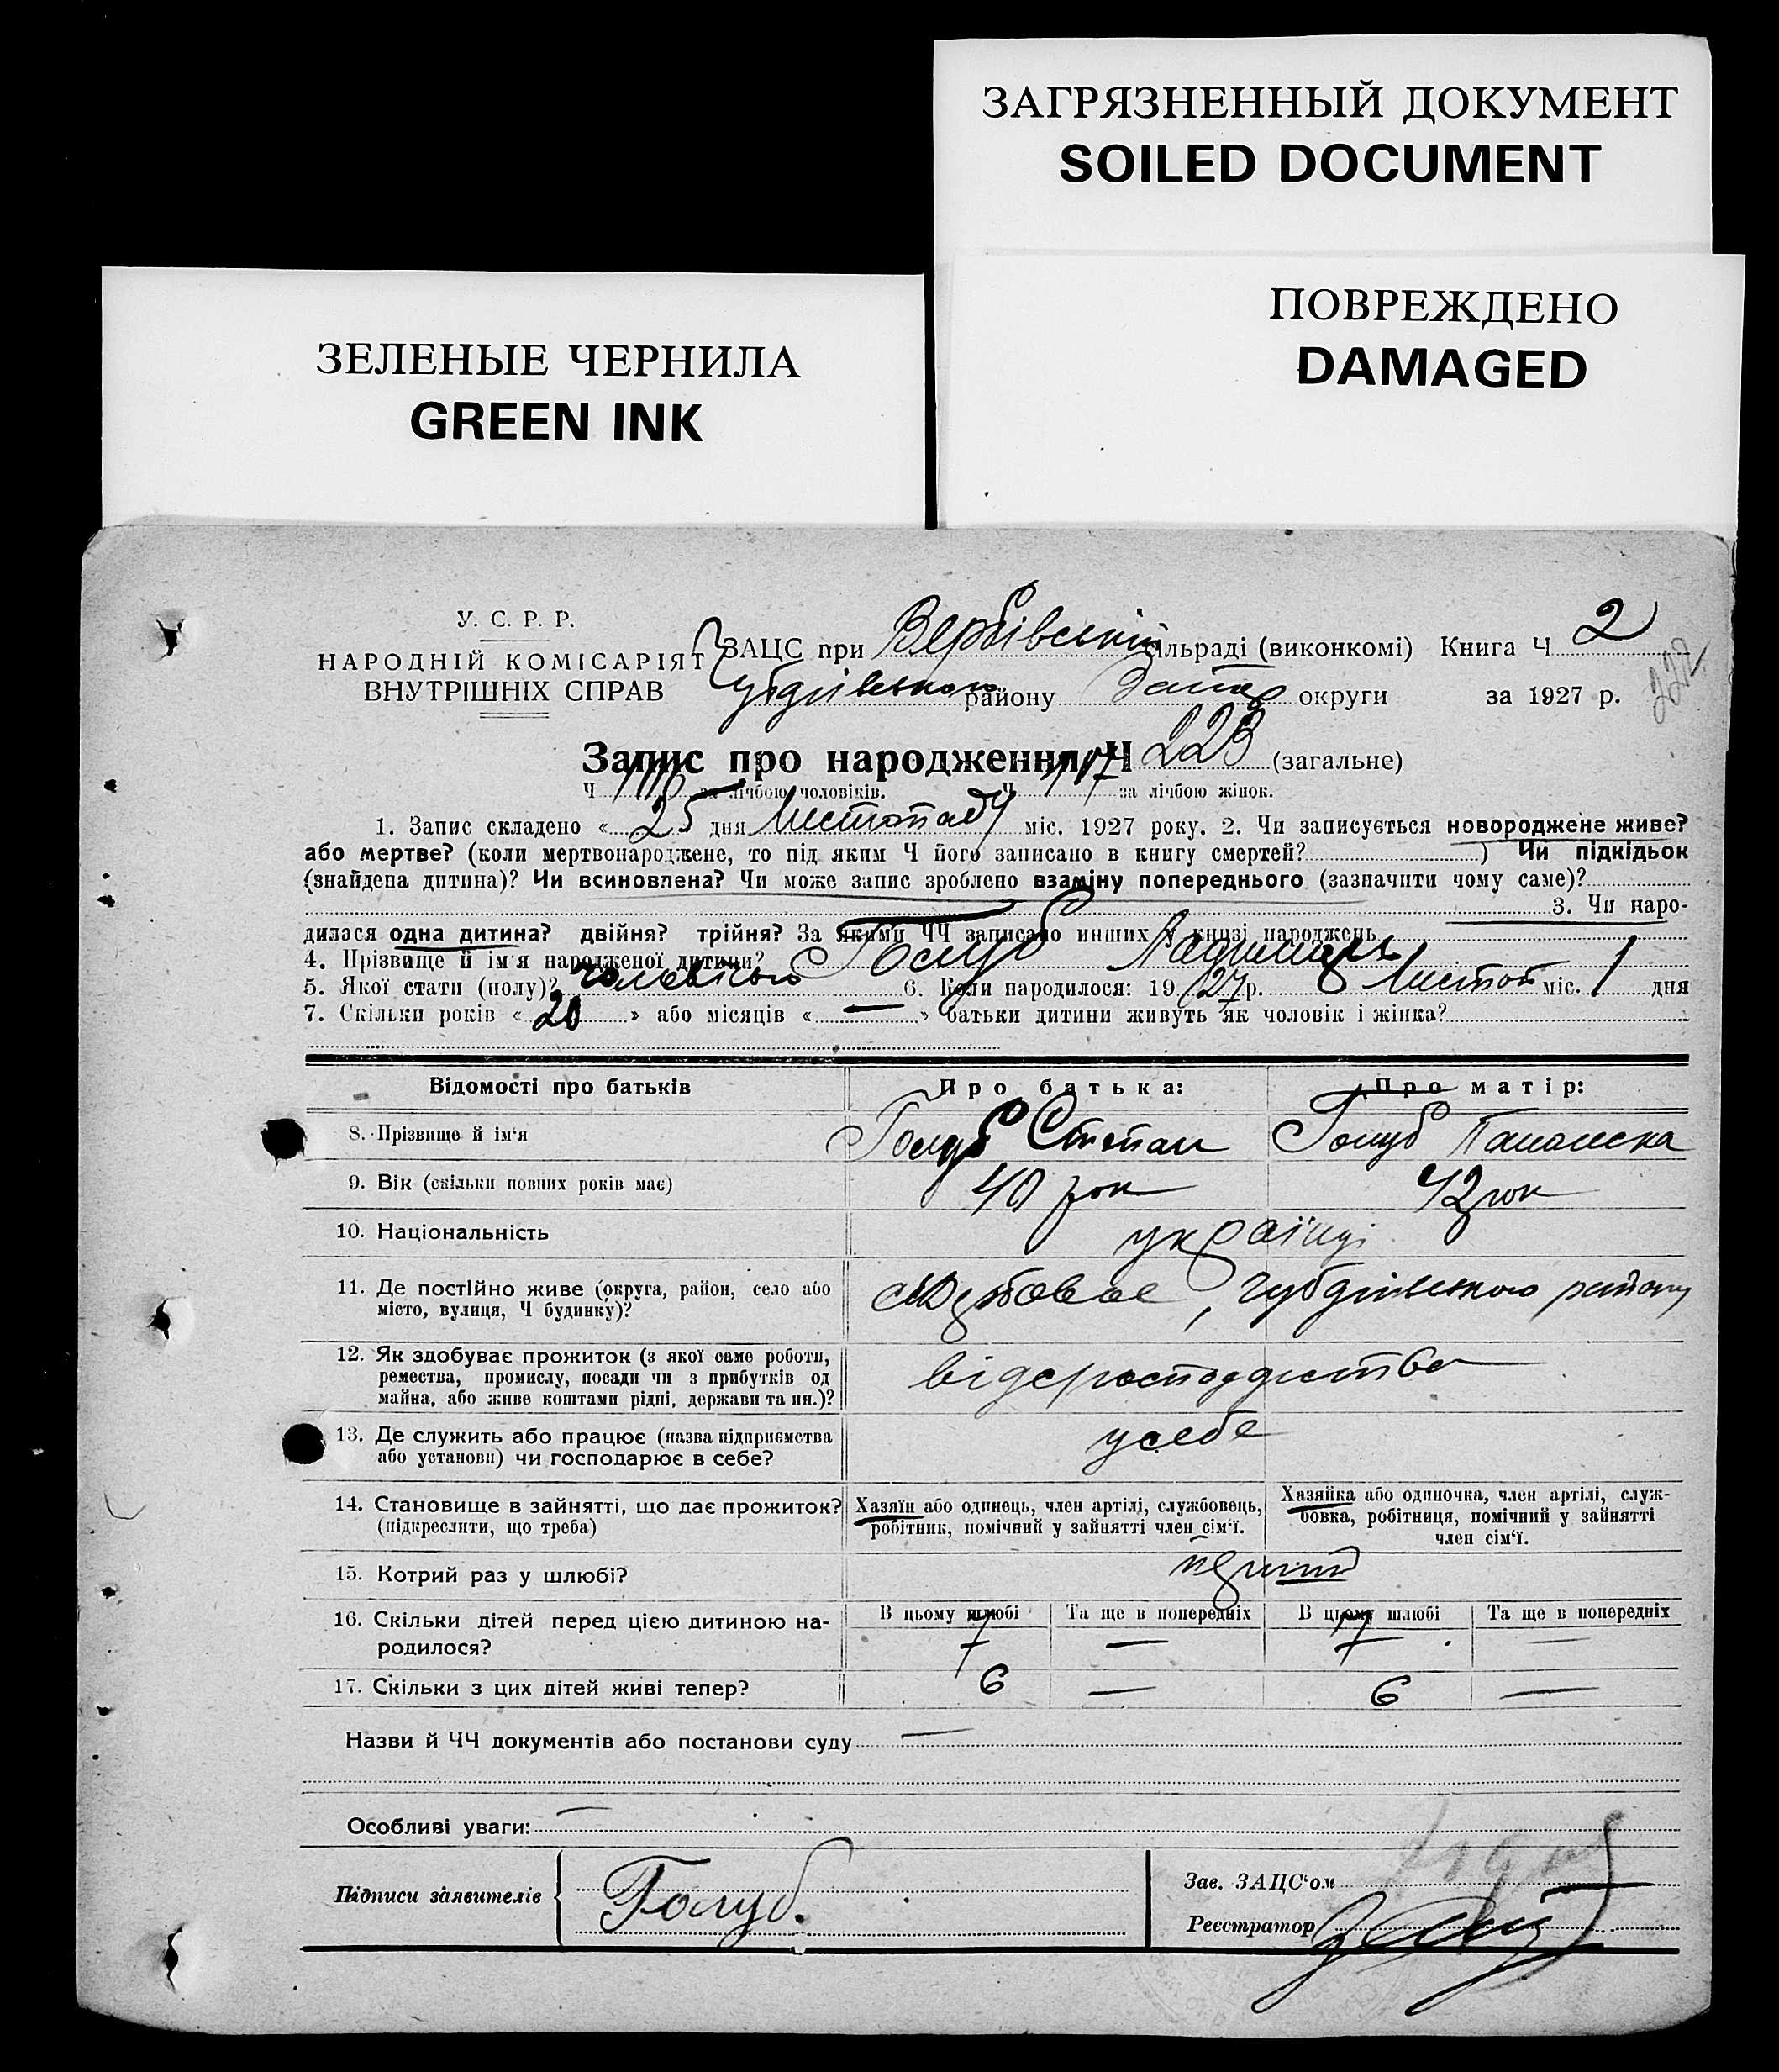 ЗАГРЯЗНЕННЫЙ ДОКУМЕНТ
SOILED DOCUMENT
ПОВРЕЖДЕНО
DAMAGED
ЗЕЛЕНЫЕ ЧЕРНИЛА
GREEN INK
У. С. Р. Р.
НАРОДНІЙ КОМІСАРІЯТ
ВНУТРІШНІХ СПРАВ
ЗАЦС при Вербівській сільраді (виконкомі) Книга Ч 2
району округи за 1927 р.
222
Запис про народження Ч 223 (загальне)
Ч 116 за лічбою чоловіків. Ч 107 за лічбою жінок.
1. Запис складено « 25 дня Листопаду міс. 1927 року. 2. Чи записується новороджене живе?
або мертве? (коли мертвонароджене, то під яким Ч його записано в книгу смертей? ) Чи підкідьок
(знайдена дитина)? Чи всиновлена? Чи може запис зроблено взаміну попереднього (зазначити чому саме)?
3. Чи наро-
дилася одна дитина? двійня? трійня? За якими ЧЧ записано инших у книзі народжень
4. Прізвище й ім'я народженої дитини? Голуб
5. Якої стати (полу)? чоловічого 6. Коли народилося: 1927 р. Листоп міс. 1 дня
7. Скільки років « 20 » або місяців « — » батьки дитини живуть як чоловік і жінка?
Відомості про батьків Про батька: Про матір:
8. Прізвище й ім'я Голуб Степан Голуб Панаска
9. Вік (скільки повних років має) 40 рок 42 рок
10. Національність українці
11. Де постійно живе (округа, район, село або
місто, вулиця, Ч будинку)?
району
12. Як здобуває прожиток (з якої саме роботи,
ремества, промислу, посади чи з прибутків од
майна, або живе коштами рідні, держави та ин.)?
13. Де служить або працює (назва підприємства
або установи) чи господарює в себе?
у себе
14. Становище в зайнятті, що дає прожиток?
(підкреслити, що треба)
Хазяїн або одинець, член артілі, службовець,
робітник, помічний у зайнятті член сім'ї.
Хазяйка або одиночка, член артілі, служ-
бовка, робітниця, помічний у зайнятті
член сім'ї.
15. Котрий раз у шлюбі?
16. Скільки дітей перед цією дитиною на-
родилося?
В цьому шлюбі Та ще в попередніх В цьому шлюбі Та ще в попередніх
7 — 7 —
17. Скільки з цих дітей живі тепер? 6 — 6 —
Назви й ЧЧ документів або постанови суду —
Особливі уваги: —
Підписи заявителів Голуб.
Зав. ЗАЦС'ом
Реєстратор